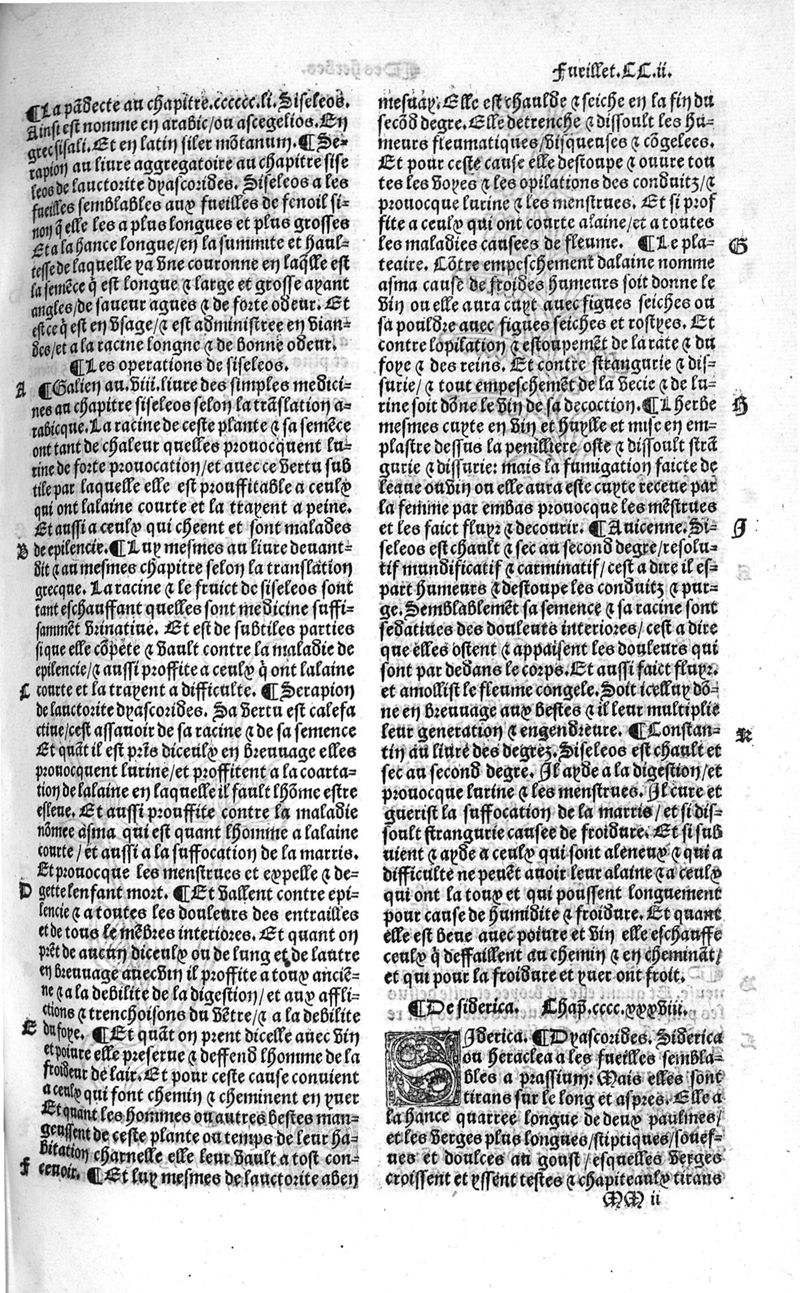 Fueillet.CC.ii.
¶La pãdecte au chapitre.cccccc.li. Siseleos.
Ainsi est nomme en arabic/ou ascegelios. En
grec sisali. Et en latin siler mõtanum. ¶Se-
rapion au liure aggregatoire au chapitre sise
leos de lauctorite dyascorides. Siseleos a les
fueilles semblables aux fueilles de fenoil si-
non q̃ elle les a plus longues et plus grosses
Et a la hance longue/en la summite et haul-
tesse de laquelle ya vne couronne en laq̃lle est
la semẽce q̃ est longue ⁊ large et grosse ayant
angles/de saueur agues ⁊ de forte odeur. Et
est ce q̃ est en vsage/⁊ est administree en vian-
des/et a la racine longne ⁊ de bonne odeur.
¶Les operations de siseleos.
A ¶Galien au.viii.liure des simples medici-
nes au chapitre siseleos selon la trãslation a-
rabicque. La racine de ceste plante ⁊ sa semẽce
ont tant de chaleur quelles prouocquent lu-
rine de forte prouocation/et auec ce vertu sub
tile par laquelle elle est prouffitable a ceulx
qui ont lalaine courte et la trayent a peine.
Et aussi a ceulx qui cheent et sont malades
B de epilencie. ¶Luy mesmes au liure deuant-
dit ⁊ au mesmes chapitre selon la translation
grecque. La racine ⁊ le fruict de siseleos sont
tant eschauffant quelles sont medicine suffi-
sammẽt vrinatiue. Et est de subtiles parties
si que elle cõpete ⁊ vault contre la maladie de
epilencie/⁊ aussi proffite a ceulx q̃ ont lalaine
C courte et la trayent a difficulte. ¶Serapion
de lauctorite dyascorides. Sa vertu est calefa
ctiue/cest assauoir de sa racine ⁊ de sa semence
Et quãt il est prĩs diceulx en breuuage elles
prouocquent lurine/et proffitent a la coarta-
tion de lalaine en laquelle il fault lhõme estre
esleue. Et aussi prouffite contre la maladie
nõmee asma qui est quant lhomme a lalaine
courte / et aussi a la suffocation de la marris.
Et prouocque les menstrues et expelle ⁊ de-
D gette lenfant mort. ¶Et vallent contre epi-
lencie ⁊ a toutes les douleurs des entrailles
et de tous le mẽbres interiores. Et quant on
prẽt de aucun diceulx ou de lung et de lautre
en breuuage auec vin il proffite a toux anciẽ-
ne ⁊ a la debilite de la digestion/ et aux afflic-
ctions ⁊ trenchoisons du vẽtre/⁊ a la debilite
E du foye. ¶Et quãt on prent dicelle auec vin
et poiure elle preserue ⁊ deffend lhomme de la
froideur de lair. Et pour ceste cause conuient
a ceulx qui font chemin ⁊ cheminent en yuer
Et quant les hommes ou autres bestes man-
geussent de ceste plante ou temps de leur ha-
bitation charnelle elle leur vault a tost con-
F ceuoir. ¶Et luy mesmes de lauctorite aben
mesuay. Elle est chaulde ⁊ seiche en la fin du
secõd degre. Elle detrenche ⁊ dissoult les hu-
meurs fleumatiques/visqueuses ⁊ cõgelees.
Et pour ceste cause elle destoupe ⁊ ouure tou
tes les voyes ⁊ les opilations des conduitz/⁊
prouocque lurine ⁊ les menstrues. Et si prof
fite a ceulx qui ont courte alaine/et a toutes
les maladies causees de fleume. ¶Le pla- G
teaire. Cõtre empeschement dalaine nomme
asma cause de froides humeurs soit donne le
vin ou elle aura cuyt auec figues seiches ou
sa pouldre auec figues seiches et rostyes. Et
contre lopilation ⁊ estoupemẽt de la rate ⁊ du
foye ⁊ des reins. Et contre strangurie ⁊ dis-
surie/⁊ tout empeschemẽt de la vecie ⁊ de lu-
rine soit dõne le vin de sa decoction. ¶Lherbe H
mesmes cuyte en vin et huylle et mise en em-
plastre dessus la penilliere oste ⁊ dissoult strã
gurie ⁊ dissurie: mais la fumigation faicte de
leaue ou vin ou elle aura este cuyte receue par
la femme par embas prouocque les mẽstrues
et les faict fluyr ⁊ decourir. ¶Auicenne. Si- I
seleos est chault ⁊ sec au second degre/resolu-
tif mundificatif ⁊ carminatif/cest a dire il es-
part humeurs ⁊ destoupe les conduitz ⁊ pur-
ge. Semblablemẽt sa semence ⁊ sa racine sont
sedatiues des douleurs interiores/ cest a dire
que elles ostent ⁊ appaisent les douleurs qui
sont par dedans le corps. Et aussi faict fluyr.
et amollist le fleume congele. Soit icelluy dõ-
ne en breuuage aux bestes ⁊ il leur multiplie
leur generation ⁊ engendreure. ¶Constan- K
tin au liure des degrez. Siseleos est chault et
sec au second degre. Il ayde a la digestion/et
prouocque lurine ⁊ les menstrues. Il cure et
guerist la suffocation de la marris/ et si dis-
soult strangurie causee de froidure. Et si sub
uient ⁊ ayde a ceulx qui sont aleneux ⁊ qui a
difficulte ne peuẽt auoir leur alaine ⁊ a ceulx
qui ont la toux et qui poussent longuement
pour cause de humidite ⁊ froidure. Et quant
elle est beue auec poiure et vin elle eschauffe
ceulx q̃ deffaillent au chemin ⁊ en cheminãt/
et qui pour la froidure et yuer ont froit.
¶De siderica. Chap̃.cccc.xxxviii.
SIderica. ¶Dyascorides. Siderica
ou heraclea a les fueilles sembla-
bles a prassium: Mais elles sont
tirans sur le long et aspres. Elle a
la hance quarree longue de deux paulmes/
et les verges plus longues/stiptiques/souef-
ues et doulces au goust/esquelles verges
croissent et yssent testes ⁊ chapiteaulx tirans
MM ii